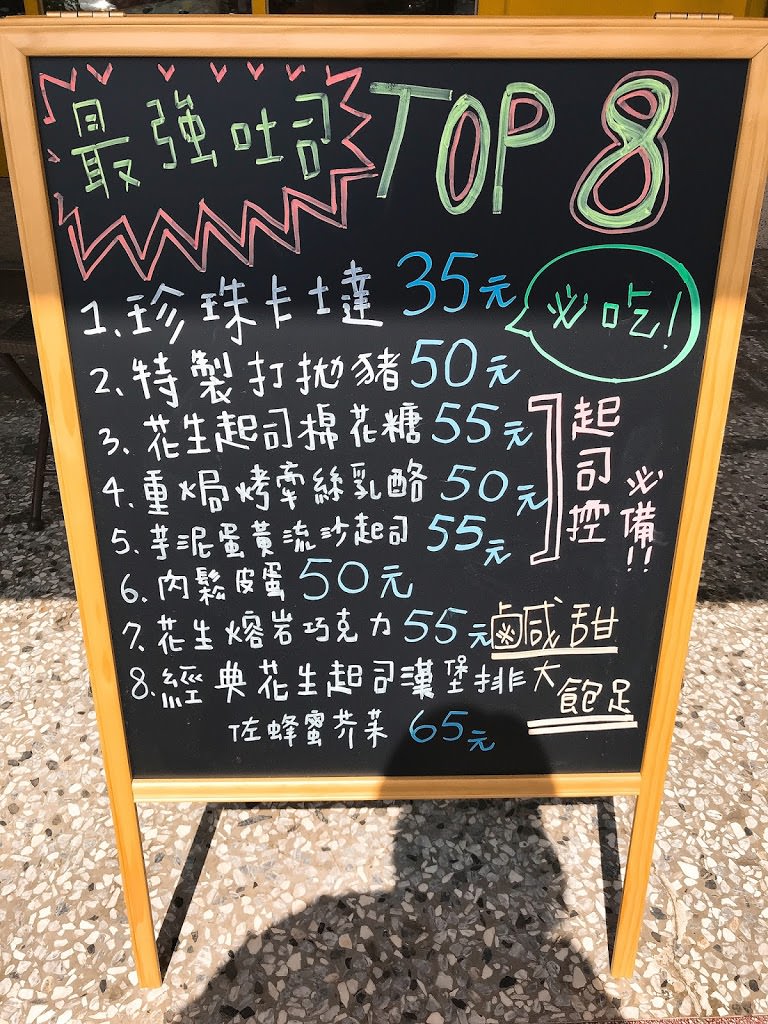 最強吐司 TOP 8
1.珍珠卡士達 35元
必吃!
2.特製打拋豬 50元
3.花生起司棉花糖 55元
4.重焗烤牽絲乳酪 50元
5.芋泥蛋黃流沙起司 55元
起司控
必備!!
6.肉鬆皮蛋 50元
7.花生熔岩巧克力 55元
鹹甜
8.經典花生起司漢堡排
大飽足
佐蜂蜜芥茉 65元